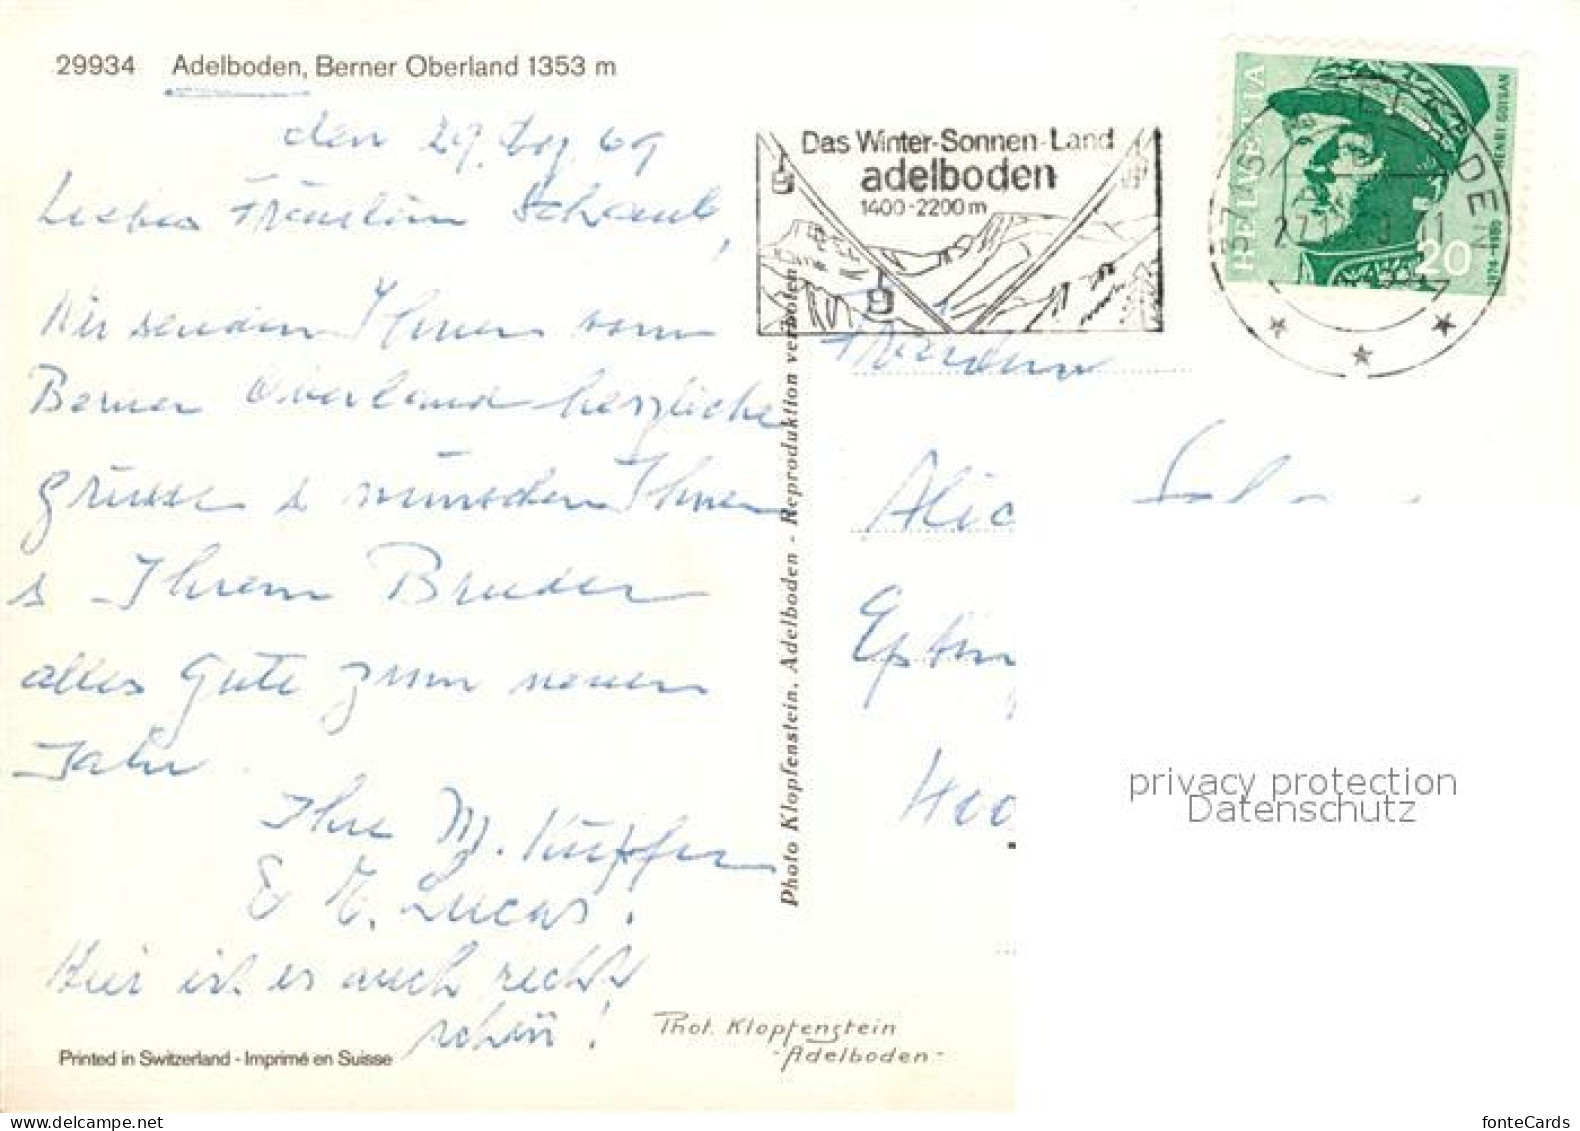 29934 Adelboden, Berner Oberland 1353 m
den 27. Dez. 69
Liebes Fräulein Schaub,
Wir senden Ihnen vom
Berner Oberland herzliche
Grüsse & wünschen Ihnen
& Ihrem Bruder
alles Gute zum neuen
Jahr.
Ihre M. Küpfer
& E. Lucas.
Hier ist es auch recht
schön!
Printed in Switzerland - Imprimé en Suisse
Phot. Klopfenstein
-Adelboden-
Photo Klopfenstein, Adelboden - Reproduktion verboten
Das Winter-Sonnen-Land
adelboden
1400-2200 m
HELVETIA
HENRI GUISAN
1874-1960
20
Fräulein
Alic
Hoo
privacy protection
Datenschutz
www.delcampe.net
fonteCards